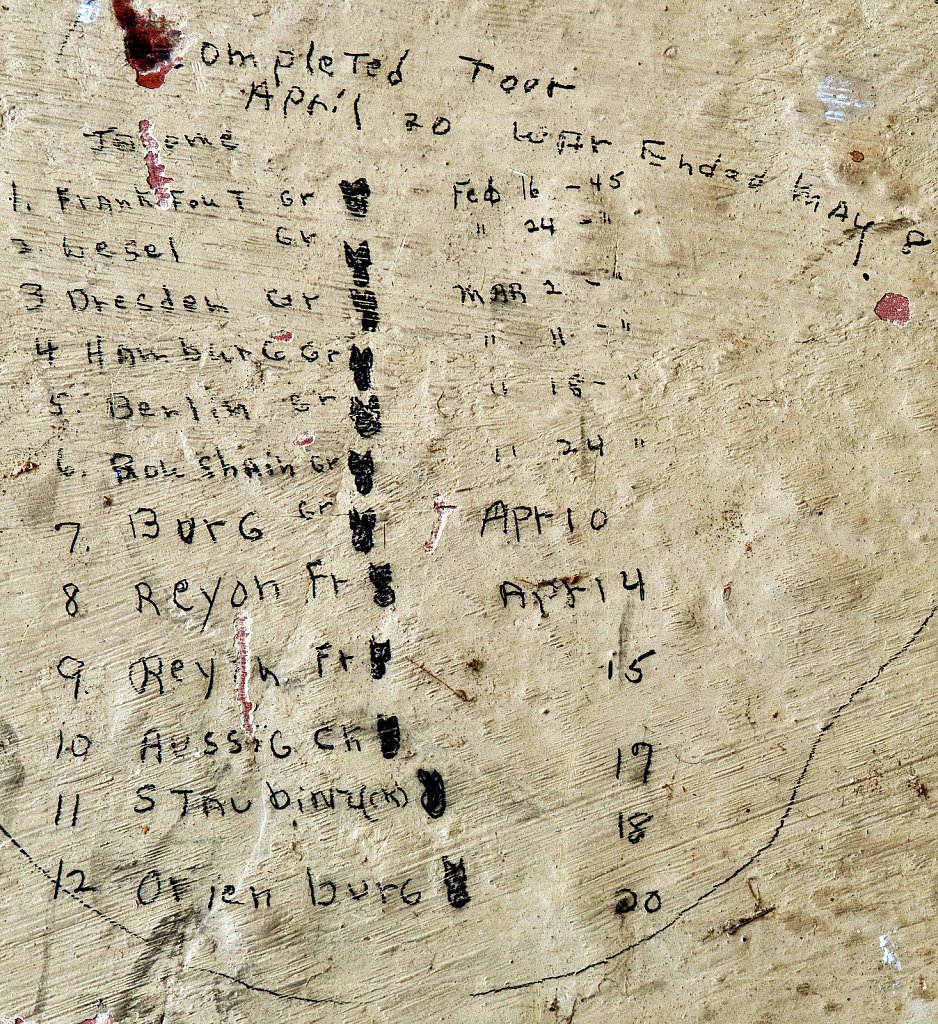 ompleted Toor
April 20 WAr Ended MAy 8.
1. FrAnkfouT Gr Feb 16 - 45
2. Wesel Gr " 24 - "
3 Dresden Gr MAR 2 - "
4 HAmburG Gr " 11 - "
5. Berlin Gr " 18 - "
6. Gr " 24 "
7. BurG Gr Apr 10
8 Reyon Fr Apr 14
9. Reyon Fr 15
10 AussiG Ch 17
11 17 18
12 Orien burG 20